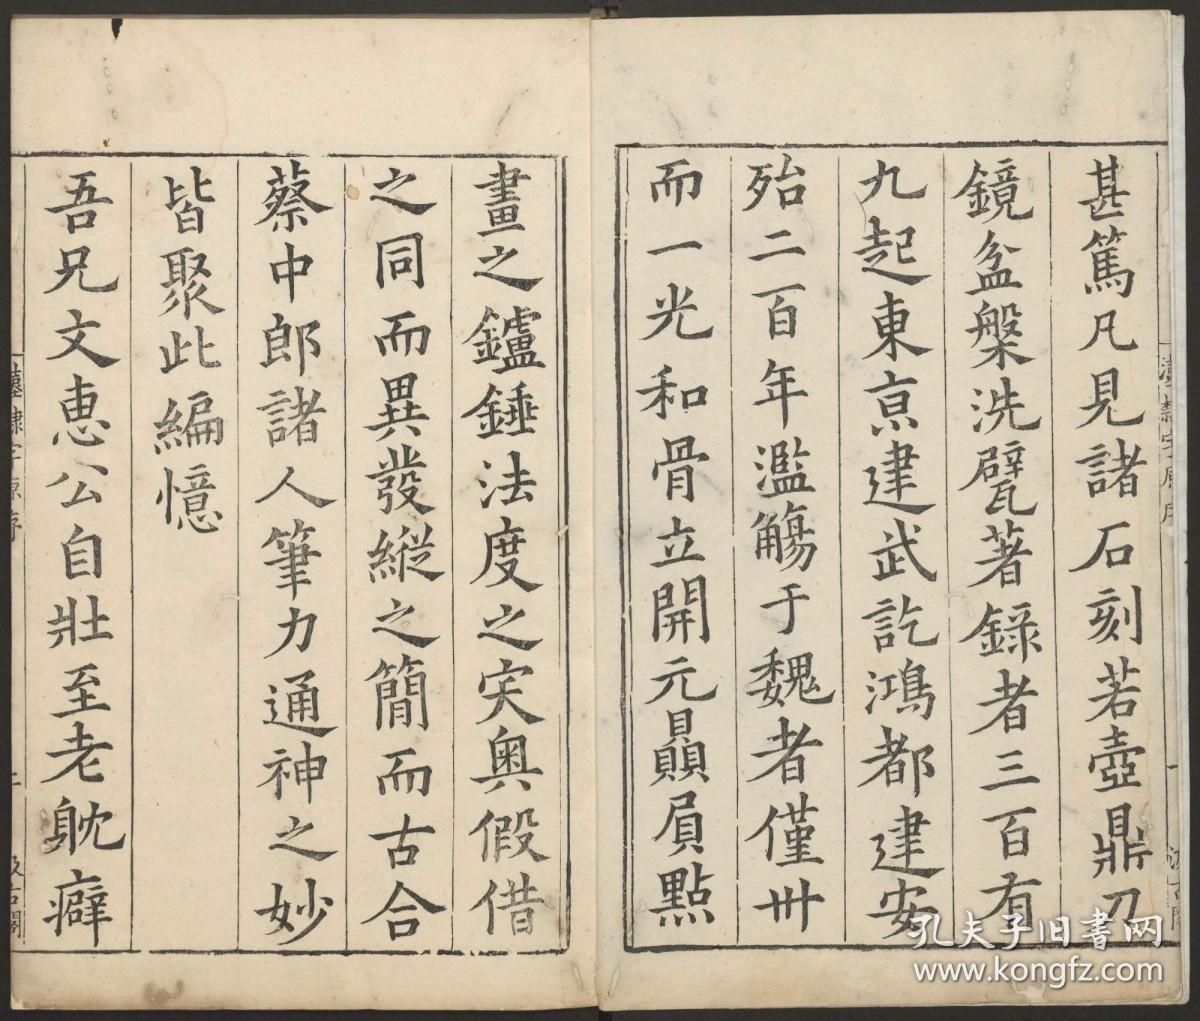 甚篤凡見諸石刻若壺鼎刀
鏡盆槃洗甓著錄者三百有
九起東京建武訖鴻都建安
殆二百年濫觴于魏者僅卅
而一光和骨立開元贔屓點
畫之鑪錘法度之宎奧假借
之同而異發縱之簡而古合
蔡中郎諸人筆力通神之妙
皆聚此編憶
吾兄文惠公自壯至老躭癖
漢隸字原序
二
汲古閣
孔夫子旧书网
www.kongfz.com